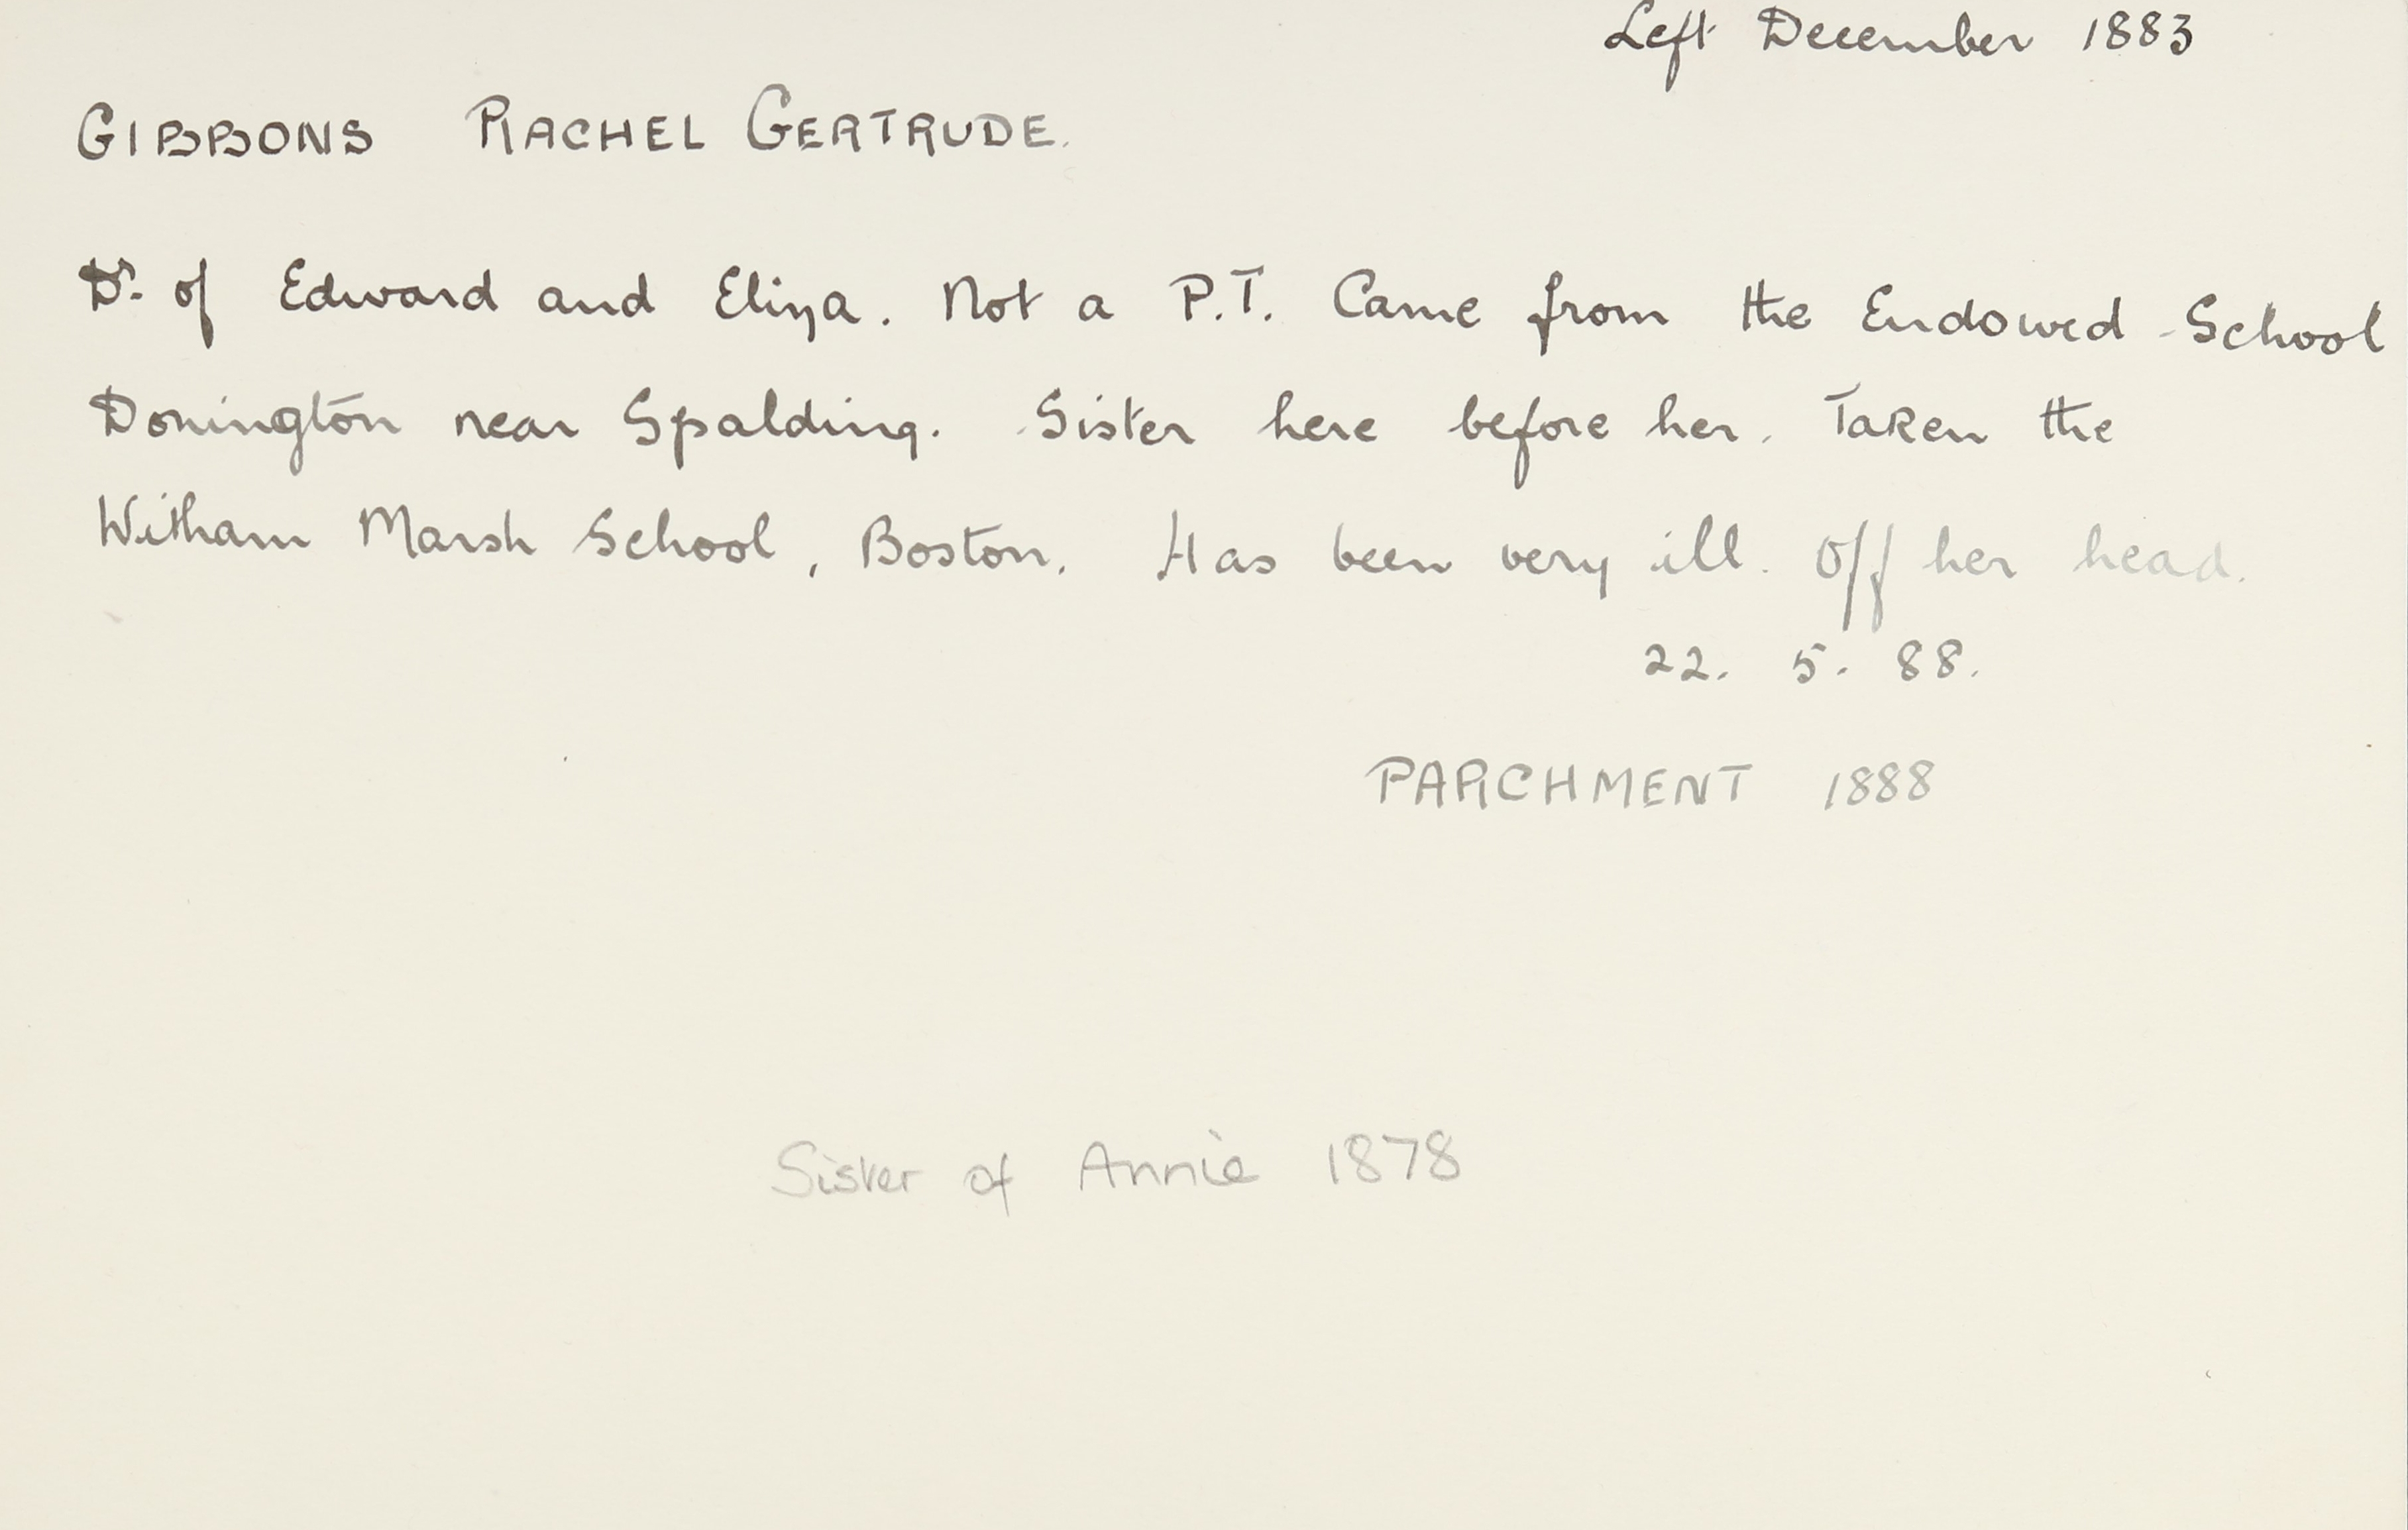 Left December 1883
GIBBONS RACHEL GERTRUDE.
Dr. of Edward and Eliza. Not a P.T. Came from the Endowed School
Donington near Spalding. Sister here before her. Taken the
Witham Marsh School, Boston. Has been very ill. Off her head.
22. 5. 88.
PARCHMENT 1888
Sister of Annie 1878